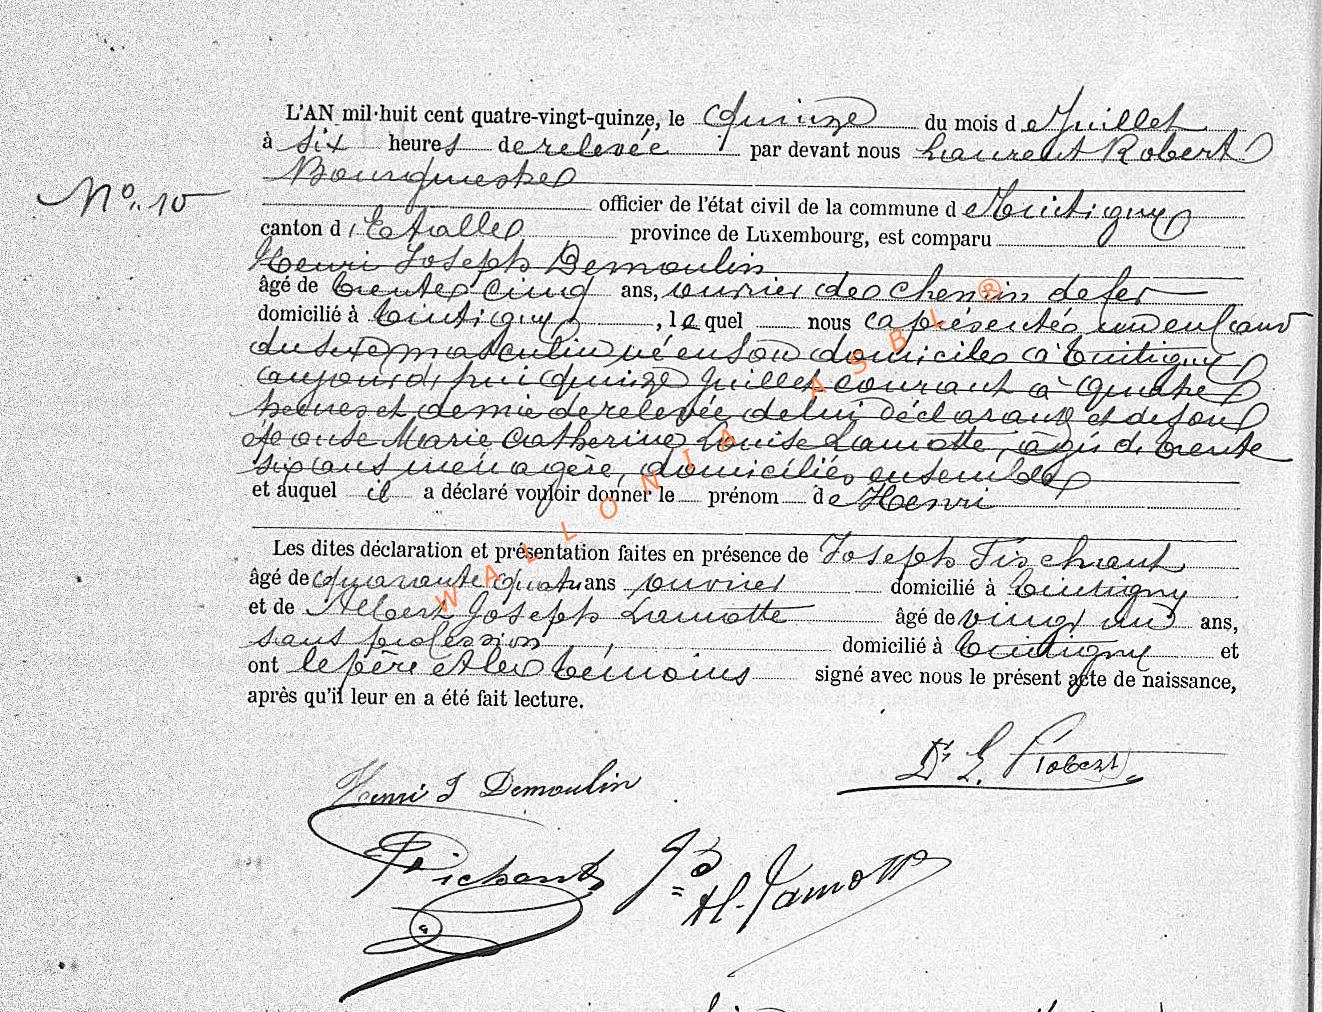 L'AN mil-huit cent quatre-vingt-quinze, le quinze du mois de Juillet
à six heures de relevée par devant nous Laurent Robert
Bourgmestre
No. 10
officier de l'état civil de la commune de Tintigny
canton d'Etalle province de Luxembourg, est comparu
Henri Joseph Demoulin
âgé de trente cinq ans, ouvrier de chemin de fer
domicilié à Tintigny, lequel nous a présenté un enfant
du sexe masculin né en son domicile à Tintigny
aujourd'hui quinze Juillet courant à quatre
heures et demie de relevée de lui déclarant et de son
épouse Marie Catherine Louise Lamotte, agée de trente
six ans ménagère, domiciliés ensemble
et auquel il a déclaré vouloir donner le prénom de Henri
Les dites déclaration et présentation faites en présence de Joseph
âgé de quarante quatre ans ouvrier domicilié à Tintigny
et de Albert Joseph Lamotte âgé de vingt un ans,
sans profession domicilié à Tintigny et
ont le père et les témoins signé avec nous le présent acte de naissance,
après qu'il leur en a été fait lecture.
Dr L. Robert
Henri J Demoulin
Al. Lamotte
WALLONIA ASBL ®